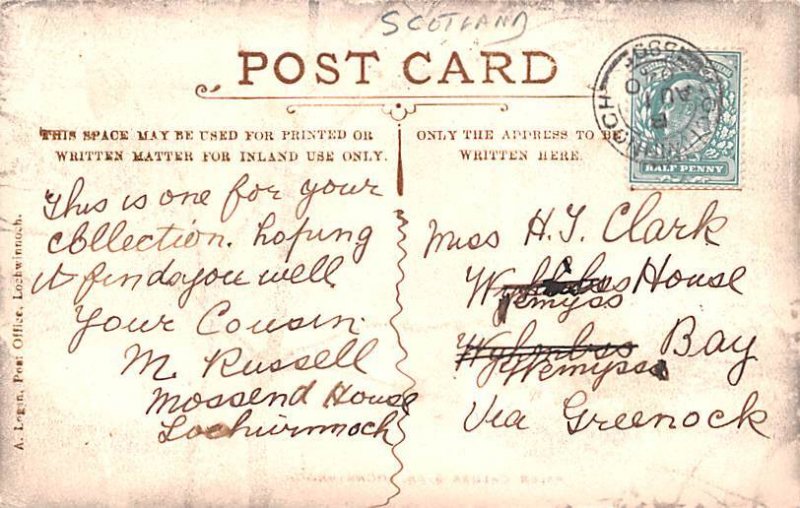 SCOTLAND
POST CARD
THIS SPACE MAY BE USED FOR PRINTED OR
WRITTEN MATTER FOR INLAND USE ONLY.
ONLY THE ADDRESS TO BE
WRITTEN HERE.
HALF PENNY
This is one for your
collection. hoping
it finds you well
Your Cousin
M. Russell
Mossend House
Lochwinnoch
Miss H. J. Clark
House
Wemyss
Bay
Wemyss
Via Greenock
A. Logan, Post Office, Lochwinnoch.